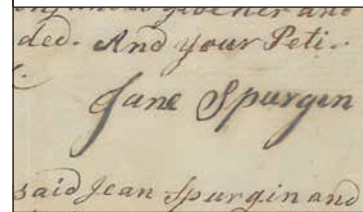 ded. And your Peti..
Jane Spurgin
said Jean Spurgin and